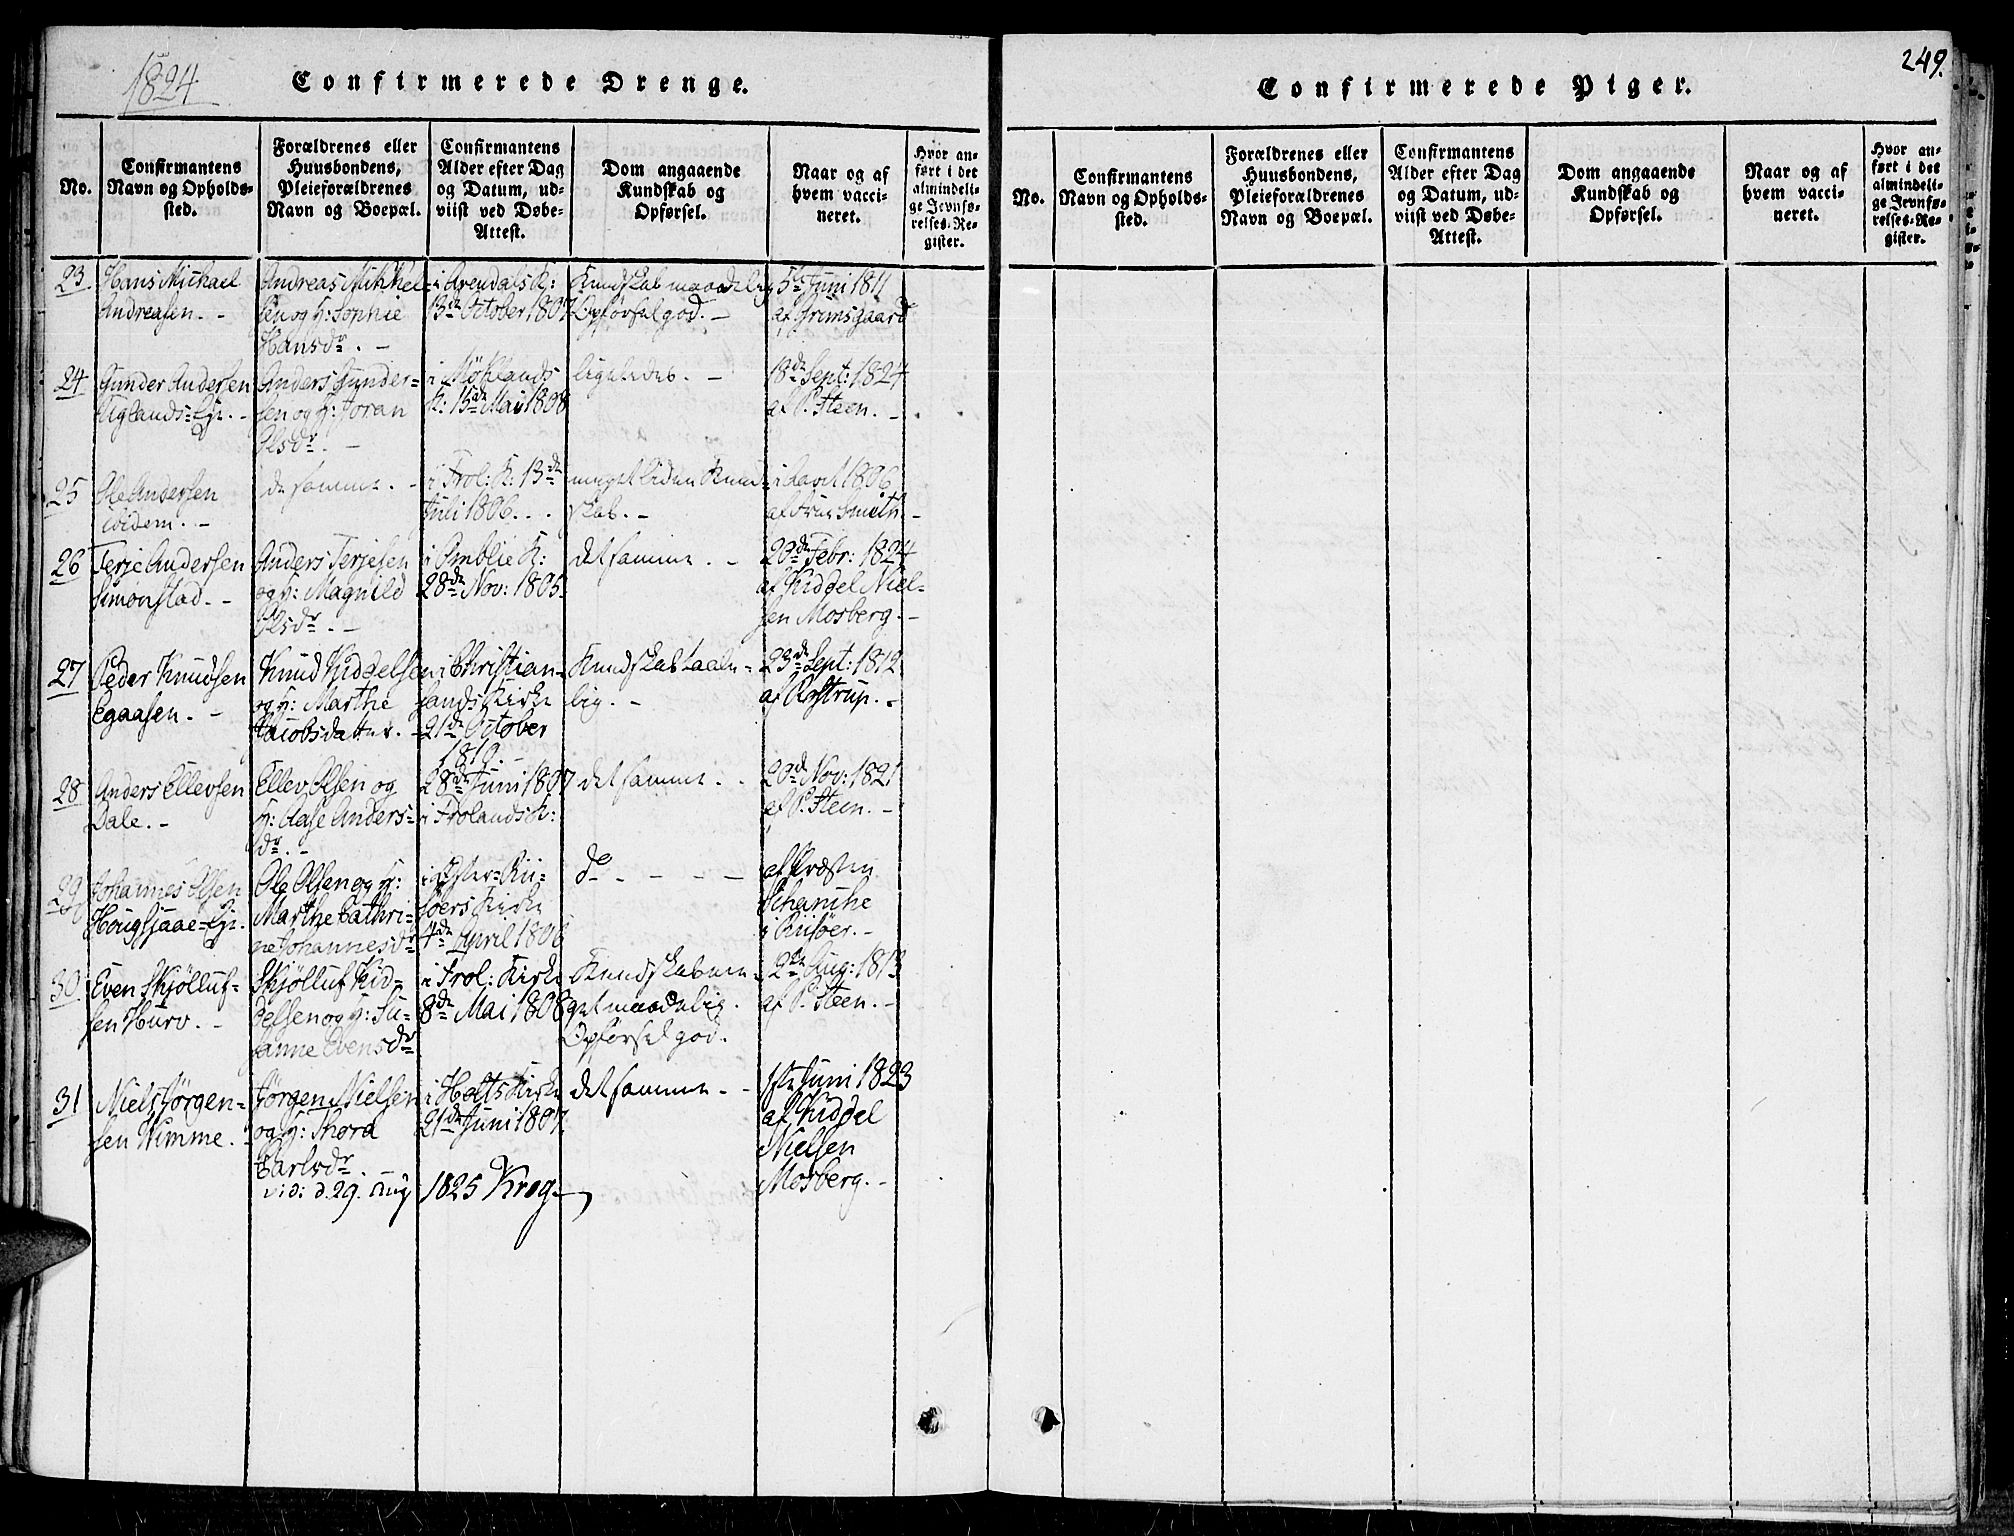 1824
Confirmerede Drenge.
No.
Confirmantens
Navn og Opholds-
sted.
Forældrenes eller
Huusbondens,
Pleieforældrenes
Navn og Boepæl.
Confirmantens
Alder efter Dag
og Datum, ud-
viist ved Døbe-
Attest.
Dom angaaende
Kundskab og
Opførsel.
Naar og af
hvem vacci-
neret.
Hvor an-
ført i det
almindeli-
ge Jevnfø-
relses-Re-
gister.
23
Hans Michael
Andreasen. -
Andreas Mikkel-
sen og H: Sophie
Hansdr. -
i Arendals K:
13de October 1807
Kundskab maadelig
Opførsel god. -
5te Juni 1811
af Grimsgaard
24
Gunder Andersen
Uglands-Eje. -
Anders Gunder-
sen og H: Joran
Olsdr. -
i Møklands
K: 15de Mai 1808
ligeledes. -
18de Sept: 1824
af P. Steen. -
25
Ole Andersen
ibidem. -
de samme. -
i Frol: K: 13de
Juli 1806. -
meget liden Kund-
skab. -
i Aaret 1806
af Frue Smith. -
26
Terje Andersen
Simonstad. -
Anders Terjesen
og H: Magnild
Olsdr. -
i Omblie K:
28de Nov: 1805.
det samme. -
20de Febr: 1824
af Kiddel Niel-
sen Mosberg. -
27
Peder Knudsen
Egaasen. -
Knud Kiddelsen
og H: Marthe
Jacobsdatter. -
i Christian-
sands Kirke
21de October
1810. -
Kundskab taale-
lig. -
23de Sept: 1812
af Rostrup. -
28
Anders Ellevsen
Dale. -
Ellev Olsen og
H: Aase Anders-
dr. -
28de Juni 1807
i Frolands K:
det samme. -
20de Nov: 1821
af P. Steen. -
29
Johannes Olsen
Hougsjaae-Eje.
Ole Olsen og H:
Marthe Cathri-
ne Johannesdr
i Øster-Rii-
søers Kirke
4de April 1806
do - - - -
af Præsten
Schanche
i Riisøer. -
30
Even Skjølluf-
sen Hurv. -
Skjølluf Kid-
delsen og H: Su-
sanne Evensdr
i Frol: Kirke
8de Mai 1808
Kundskab me-
get maadelig.
Opførsel god.
2den Aug: 1813
af P. Steen. -
31
Niels Jørgen-
sen Nimme. -
Jørgen Nielsen
og H: Thora
Carlsdr. -
i Holts Kirke
21de Juni 1807.
det samme. -
1ste Juni 1823
af Kiddel
Nielsen
Mosberg. -
vidi d. 29. Aug 1825 Krog.
249.
Confirmerede Piger.
No.
Confirmantens
Navn og Opholds-
sted.
Forældrenes eller
Huusbondens,
Pleieforældrenes
Navn og Boepæl.
Confirmantens
Alder efter Dag
og Datum, ud-
viist ved Døbe-
Attest.
Dom angaaende
Kundskab og
Opførsel.
Naar og af
hvem vacci-
neret.
Hvor an-
ført i det
almindeli-
ge Jevnfø-
relses-Re-
gister.